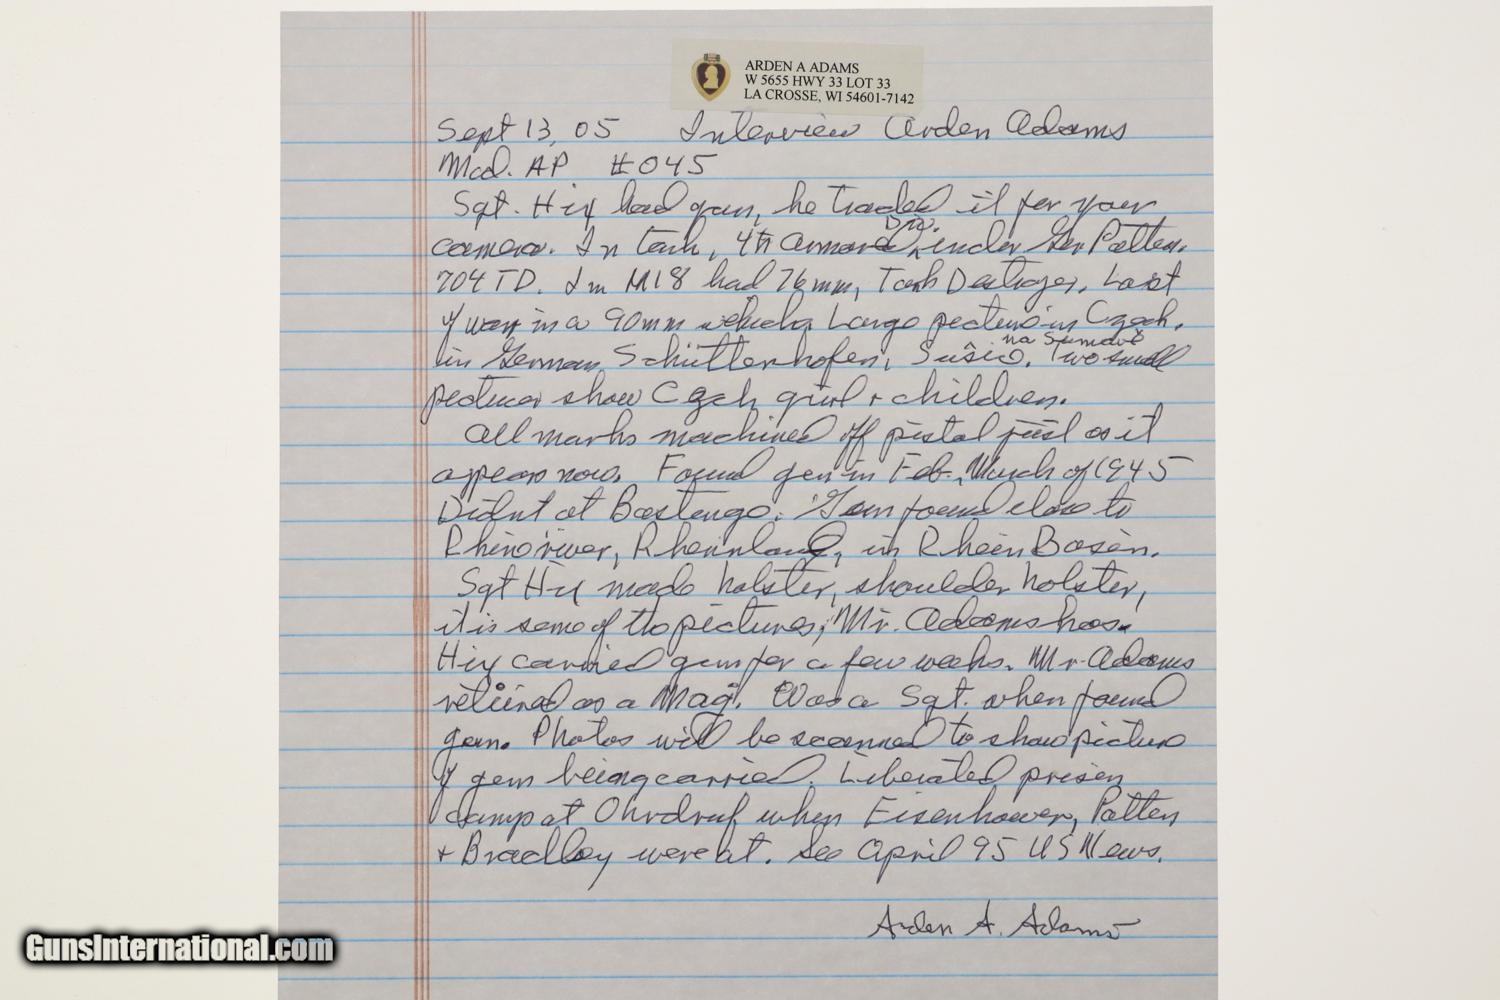 ARDEN A ADAMS
W 5655 HWY 33 LOT 33
LA CROSSE, WI 54601-7142
Sept 13, 05 Interview Arden Adams
Mod. AP #045
Sgt. Hix had gun, he traded it for your
camera. In tank, 4th Armored Div. under Gen Patten.
704 TD. In M18 had 76mm, Tank Destroyer. Last
of war in a 90mm which Large picture in Czech.
in German Schüttenhofen, Sušice. na Šumavě Two small
pictures show Czech girl + children.
All marks machined off pistol just as it
appears now. Found gun in Feb., March of 1945
Didnt at Bastengo. Gun found close to
Rhine river, Rheinland, in Rhein Basin.
Sgt Hix made holster, shoulder holster,
it is some of the pictures, Mr. Adams has.
Hix carried gun for a few weeks. Mr. Adams
retired as a Maj. Was a Sgt. when found
gun. Photos will be scanned to show picture
of gun being carried. Liberated prison
camp at Ohrdruf when Eisenhower, Patten
+ Bradley were at. See April 95 US News.
Arden A. Adams
GunsInternational.com